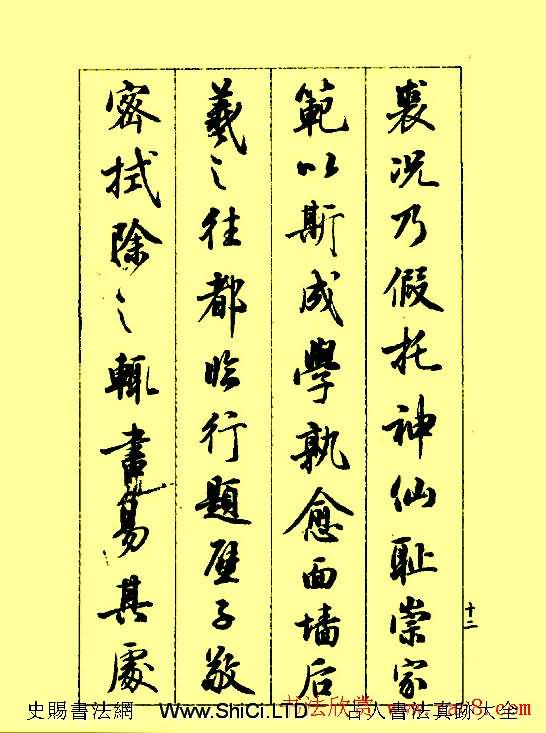 裘况乃假托神仙耻崇家
範以斯成學孰愈面墙后
羲之往都临行題壁子敬
密拭除之輒書易其處
十二
史賜書法網 www.ShiCi.LTD 古人書法真跡大全
书法欣赏